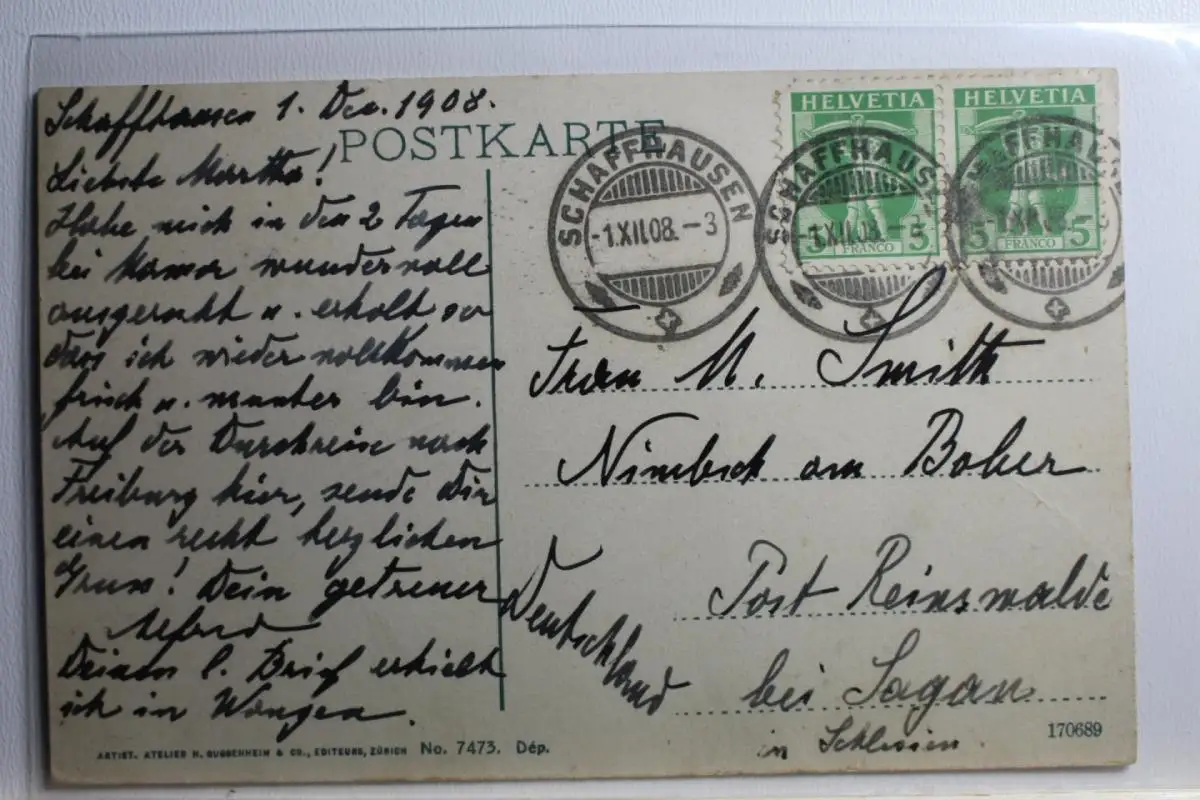 Schaffhausen 1. Dez. 1908.
POSTKARTE
Liebste Martha!
Habe mich in den 2 Tagen
bei Mama wundervoll
ausgeruht u. erholt so
dass ich wieder vollkommen
frisch u. munter bin.
Auf der Durchreise nach
Freiburg hier, sende Dir
einen recht herzlichen
Gruss! Dein getreuer
Alfred
Deinen l. Brief erhielt
ich in Wangen.
HELVETIA
HELVETIA
5 FRANCO 5
5 FRANCO 5
SCHAFFHAUSEN
-1.XII.08.-3
SCHAFFHAUSEN
-1.XII.08.-3
SCHAFFHAUSEN
-1.XII.08
Frau M. Smith
am Bober
Post Reinswalde
bei Sagan
in Schlesien.
Deutschland
170689
ARTIST. ATELIER H. GUGGENHEIM & CO., EDITEURS, ZÜRICH No. 7473. Dép.